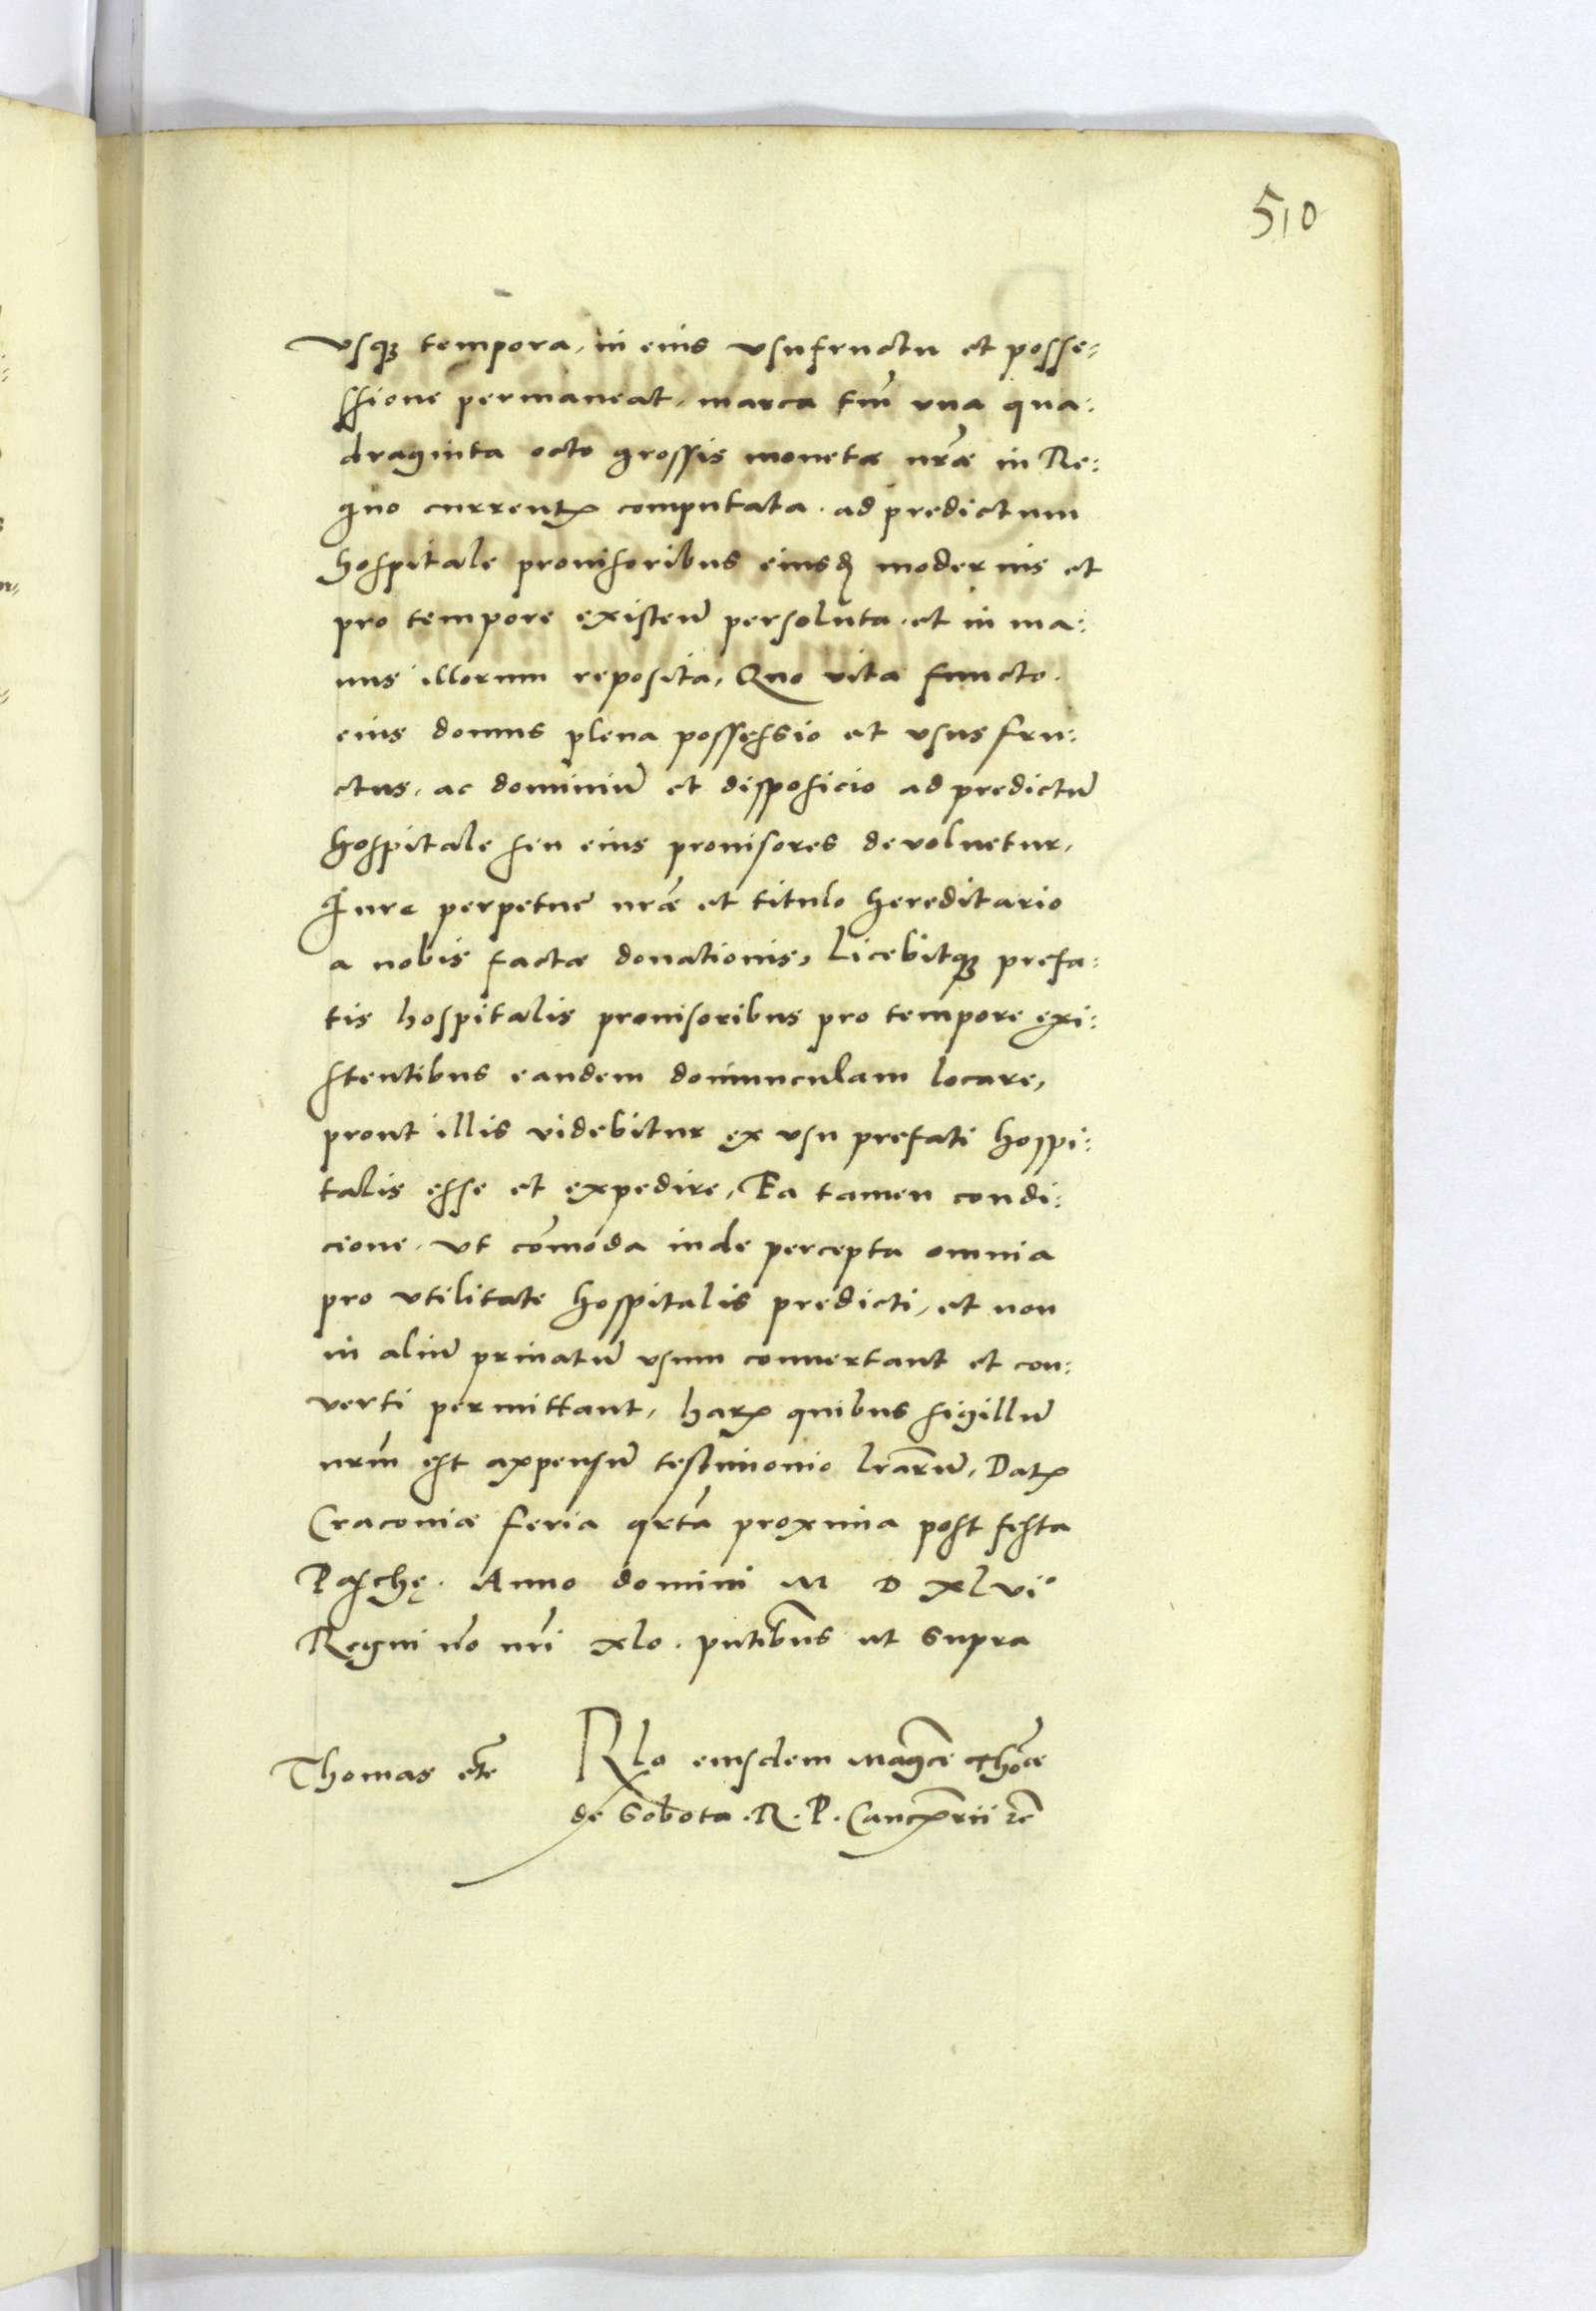 510
vsq₃ tempora, in eius vsufructu et posse-
ssione permaneat, marca tm̄ vna qua-
draginta octo grossis monetæ nr̄æ in Re-
gno currentꝭ computata. ad predictum
hospitale prouisoribus eiusđ modernis et
pro tempore existeñ persoluta. et in ma-
nus illorum reposita, Quo vita functo.
eius domus plena possessio et vsusfru-
ctus, ac dominiū et dispositio ad predictū
hospitale seu eius prouisores deuoluetur,
Iure perpetue nr̄æ et titulo hereditario
a nobis factæ donationis, Licebitq₃ prefa-
tis hospitalis prouisoribus pro tempore exi-
stentibus eandem domunculam locare,
prout illis videbitur ex vsu prefati hospi-
talis esse et expedire, Ea tamen condi-
cione, vt cōmoda inde percepta omnia
pro vtilitate hospitalis predicti, et non
in aliū priuatū vsum conuertant et con-
verti permittant, harꝭ quibus sigillū
nrm̄ est appensū testimonio lr̄arū, Datꝭ
Cracouiæ feria qrtā proxima post festa
Paschę. Anno domini M D xlvi°
Regni v̄o nr̄i xlo. pn̄tibus ut supra
Thomas etc̄
Rlo eiusdem Magc̄e Thōæ
de Sobota. R. P. Cancꝭrii ꝛc̄